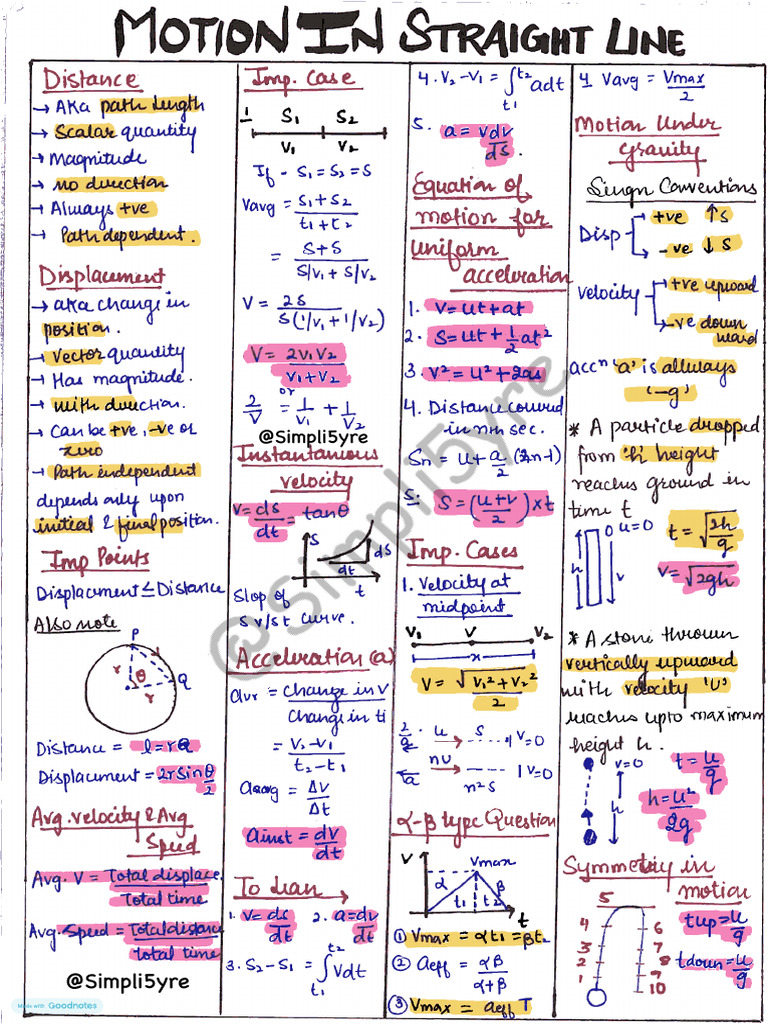 MOTION IN STRAIGHT LINE
Distance
→ AKA path length
→ Scalar quantity
→ Magnitude
→ no direction
→ Always +ve
→ Path dependent.
Displacement
→ aka change in
position.
→ Vector quantity
→ Has magnitude.
→ with direction.
→ Can be +ve, -ve or
zero
→ Path independent
depends only upon
initial & final position.
Imp Points
Displacement ≤ Distance
Also note
P
d
r
θ
Q
r
Distance = l = rθ
Displacement = 2r sin θ/2
Avg. velocity & Avg
Speed
Avg. V = Total displace.
Total time
Avg. Speed = Total distance
total time
@Simpli5yre
Made with Goodnotes
Imp. Case
1 S1 S2
V1 V2
If - S1 = S2 = S
Vavg = S1 + S2
t1 + t2
= S + S
S/V1 + S/V2
V = 2S
S(1/V1 + 1/V2)
V = 2V1V2
V1 + V2
or
2/V = 1/V1 + 1/V2
@Simpli5yre
Instantaneous
velocity
V = ds/dt = tanθ
S
ds
dt
t
Slop of
S v/s t curve.
Acceleration (a)
avr = Change in V
Change in ti
= V2 - V1
t2 - t1
aavg = ΔV
Δt
ainst = dV
dt
To Lran →
1. V = ds/dt 2. a = dv/dt
3. S2 - S1 = ∫ t2 t1 Vdt
4. V2 - V1 = ∫ t2 t1 adt
5. a = vdv
ds.
Equation of
motion for
uniform
acceleration
1. V = ut + at
2. S = ut + 1/2 at²
3. V² = u² + 2as
4. Distance covered
in nth sec.
Sn = u + a/2 (2n-1)
5. S = (u+v/2) × t
Imp. Cases
1. Velocity at
midpoint
V1 V V2
x
V = √V1² + V2²
2
2 u S V=0
a nu V=0
a n²S
α-β type Question
V
Vmax
α β
t1 t2 t
① Vmax = αt1 = βt2
② aeff = αβ
α+β
③ Vmax = aeff T
4 Vavg = Vmax
2
Motion Under
gravity
Singn Conventions
Disp +ve ↑S
-ve ↓S
velocity +ve upward
-ve down
ward
accⁿ 'a' is allways
'-g'
* A particle dropped
from 'h' height
reaches ground in
time t
0 u=0
h
v
t = √2h/g
V = √2gh
* A stone thrown
vertically upward
with velocity 'U'
reaches upto maximum
height h.
v=0
h
u
t = u/g
h = u²
2g
Symmetry in
motion
5
4 6
3 7
2 8
9
1 10
tup = u/g
tdown = u/g
@Simpli5yre